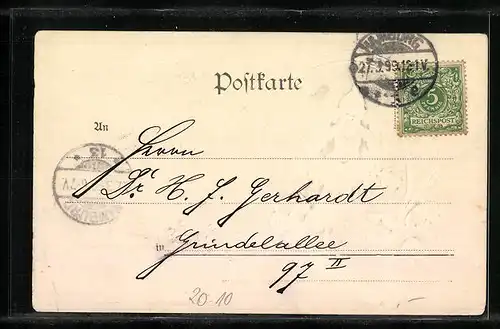 HAMBURG
27.3.99.12-1V.
5
REICHSPOST
Postkarte
An
13
Herrn
Dr. H. J. Gerhardt
in Grindelallee
97 II
20-10